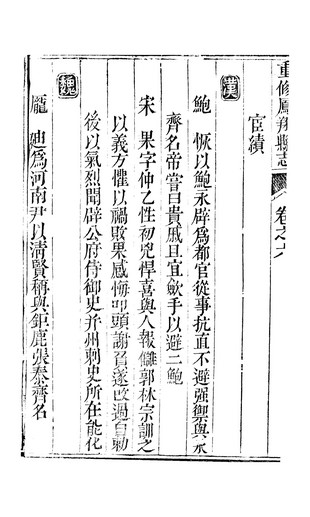 重修鳳翔縣志 卷之六
宦績
漢
鮑 恢以鮑永辟爲都官從事抗直不避强禦與永
齊名帝嘗曰貴戚且宜歛手以避二鮑
宋 果字仲乙性初兇悍喜與人報讎郭林宗訓之
以義方懼以禍敗果感悔叩頭謝負遂改過自勅
後以氣烈聞辟公府侍御史并州刺史所在能化
魏
龐 迪爲河南尹以清賢稱與鉅鹿張泰齊名